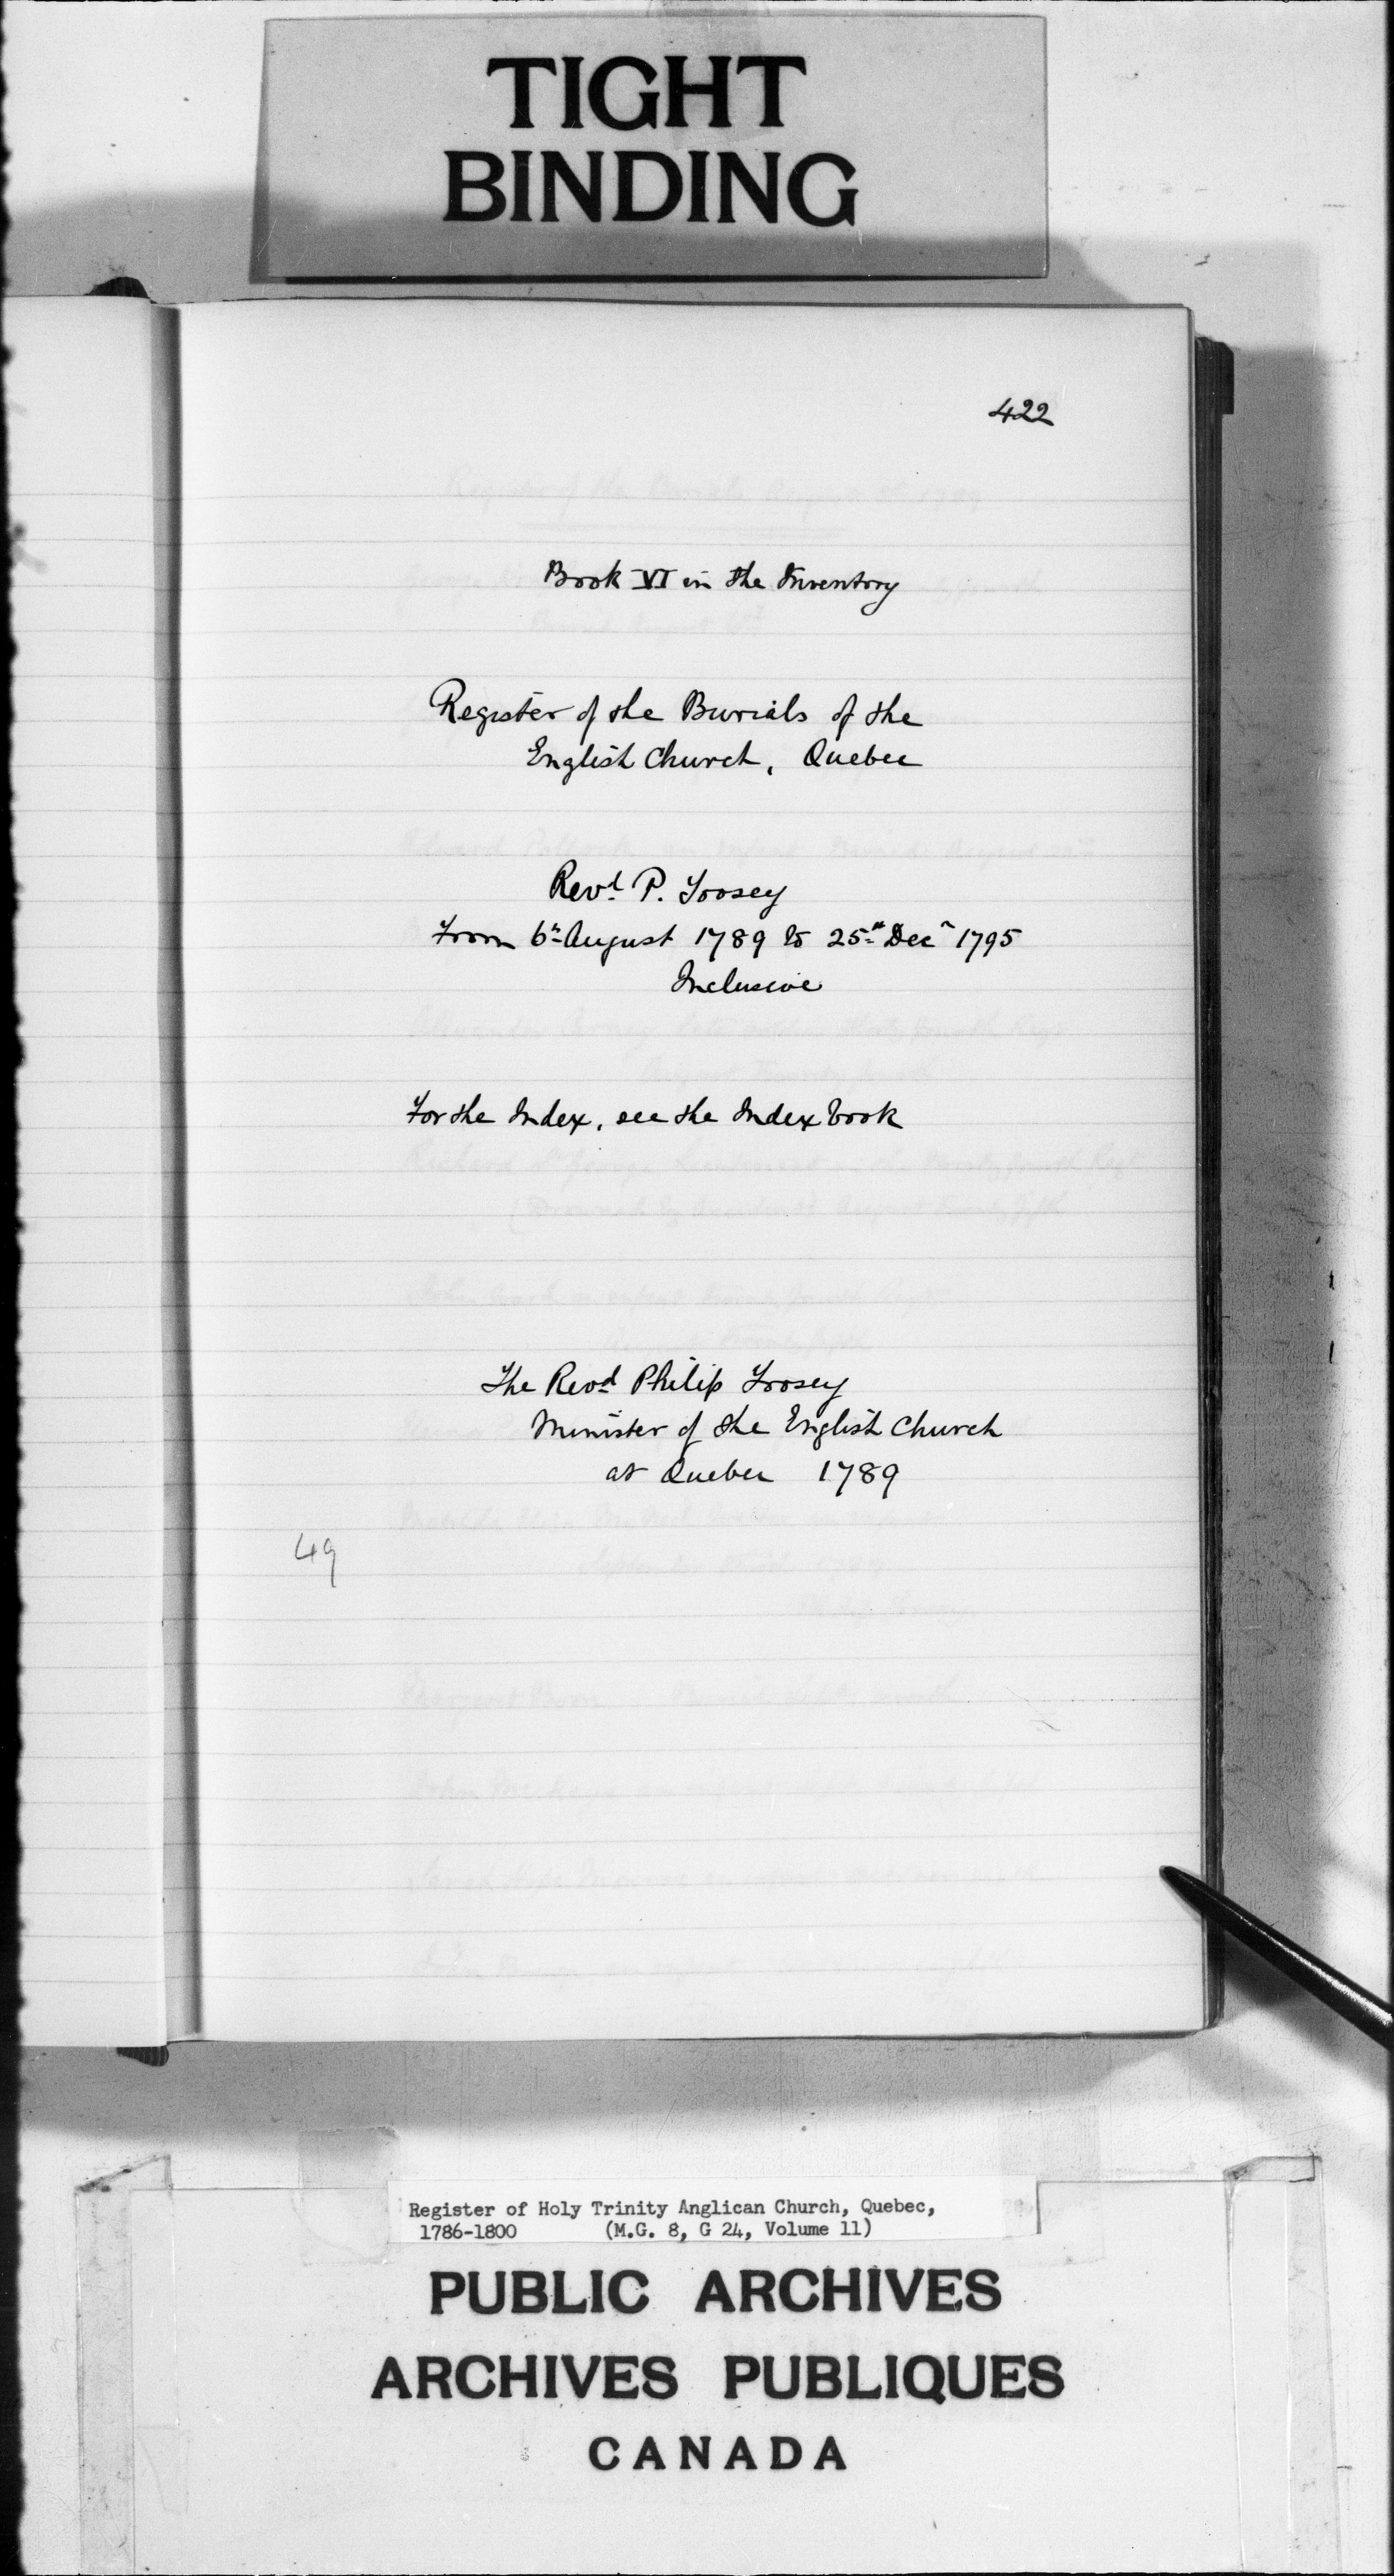 TIGHT
BINDING
422
Book VI in the Inventory
Register of the Burials of the
English Church, Quebec
Revd. P. Toosey
From 6th August 1789 to 25th Decr 1795
Inclusive
For the Index, see the Index book
The Revd Philip Toosey
Minister of the English Church
at Quebec 1789
49
Register of Holy Trinity Anglican Church, Quebec,
1786-1800 (M.G. 8, G 24, Volume 11)
PUBLIC ARCHIVES
ARCHIVES PUBLIQUES
CANADA